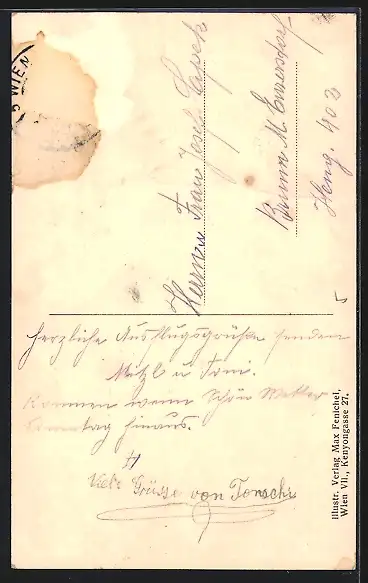 WIEN
Herrn u Frau Josef Capek
Brunn M. Enzersdorf
Heng. 403
Herzliche Ausflugsgrüße senden
Mitzl u Toni.
Kommen wenn Schön Wetter
Sonntag hinaus.
Viele Grüsse von Tonschi
Illustr. Verlag Max Fenichel,
Wien VII., Kenyongasse 27.
5